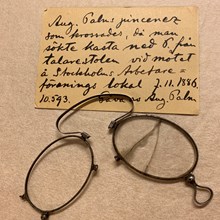 Aug. Palms pincenez
som krossades, då man
sökte kasta ned P. från
talarestolen vid mötet
å Stockholms Arbetare=
förenings lokal 2.11.1886.
10.593. Aug. Palm